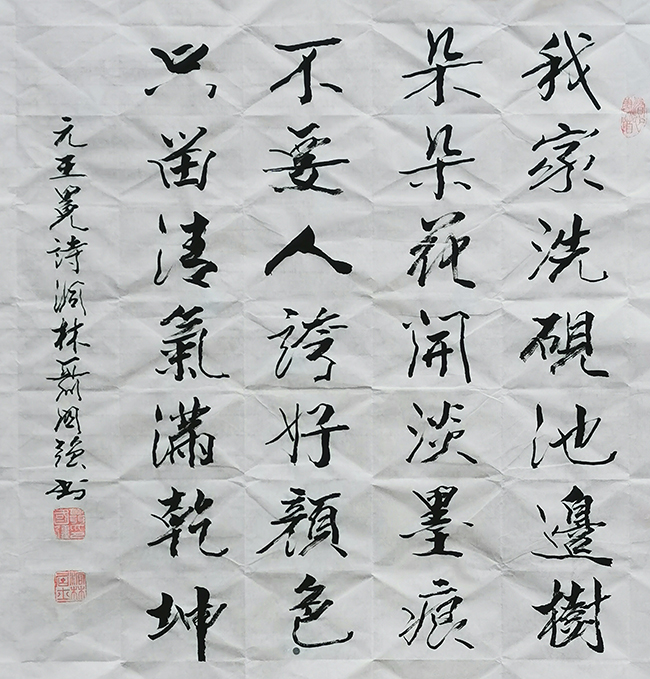 我家洗硯池邊樹
朵朵花開淡墨痕
不要人誇好顏色
只留清氣滿乾坤
元王冕詩林國强书